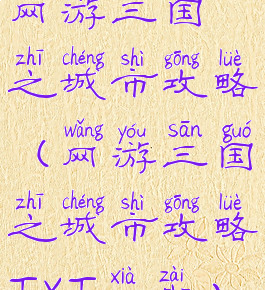 网游三国
zhī chéng shì gōng lüè
之城市攻略
wǎng yóu sān guó
(网游三国
zhī chéng shì gōng lüè
之城市攻略
xià zài
TXT